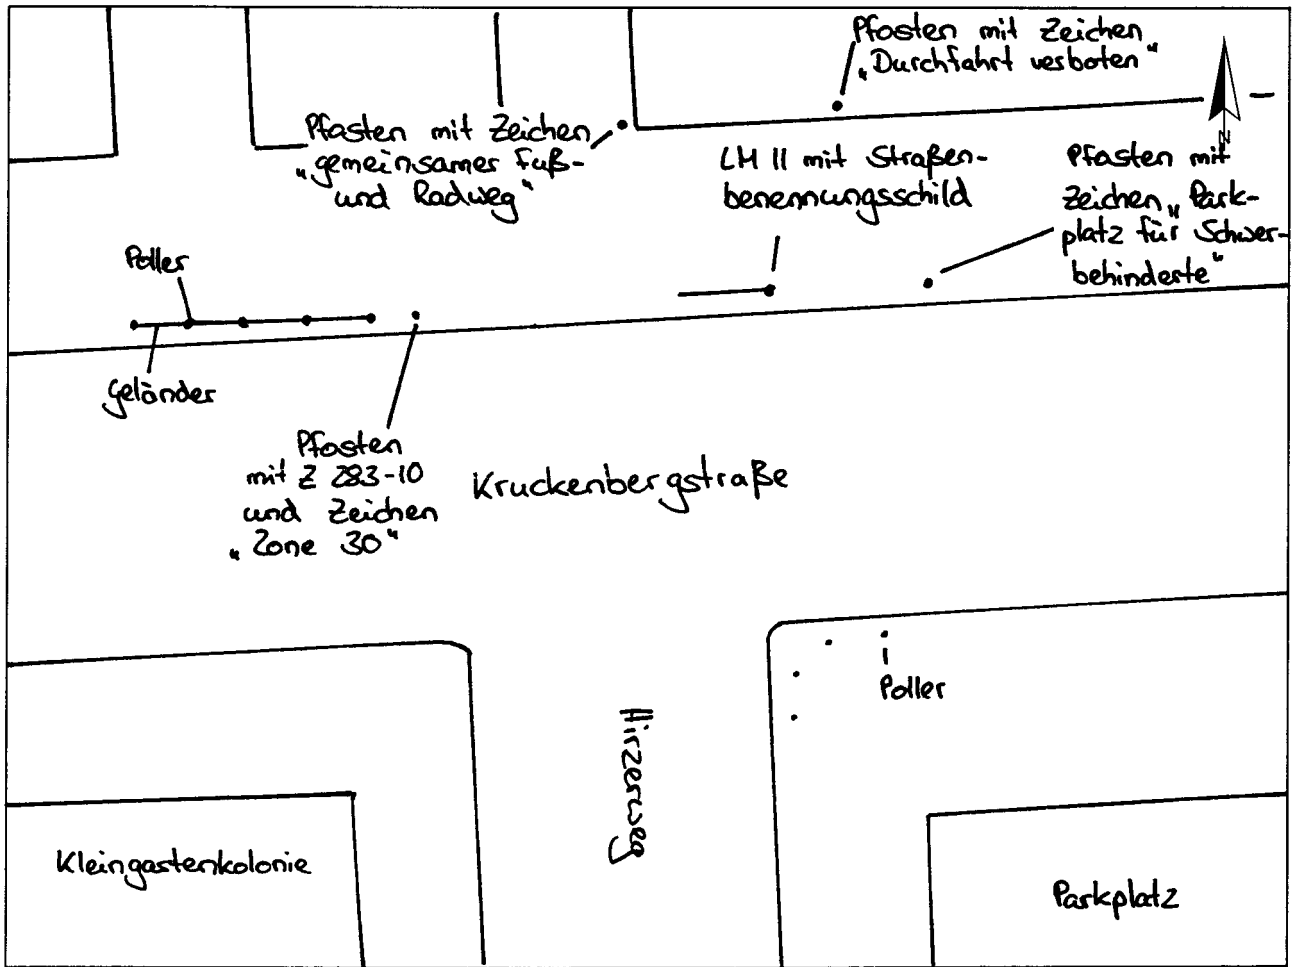 Pfosten mit Zeichen
„Durchfahrt verboten“
Pfosten mit Zeichen
„gemeinsamer Fuß-
und Radweg“
LM II mit Straßen-
benennungsschild
N
Pfosten mit
Zeichen „Park-
platz für Schwer-
behinderte“
Poller
Geländer
Pfosten
mit Z 283-10
und Zeichen
„Zone 30“
Kruckenbergstraße
Poller
Hirzenweg
Kleingartenkolonie
Parkplatz